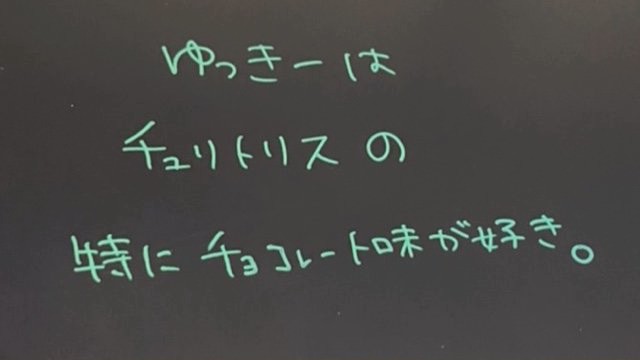 ゆっきーは
チュリトリスの
特にチョコレート味が好き。